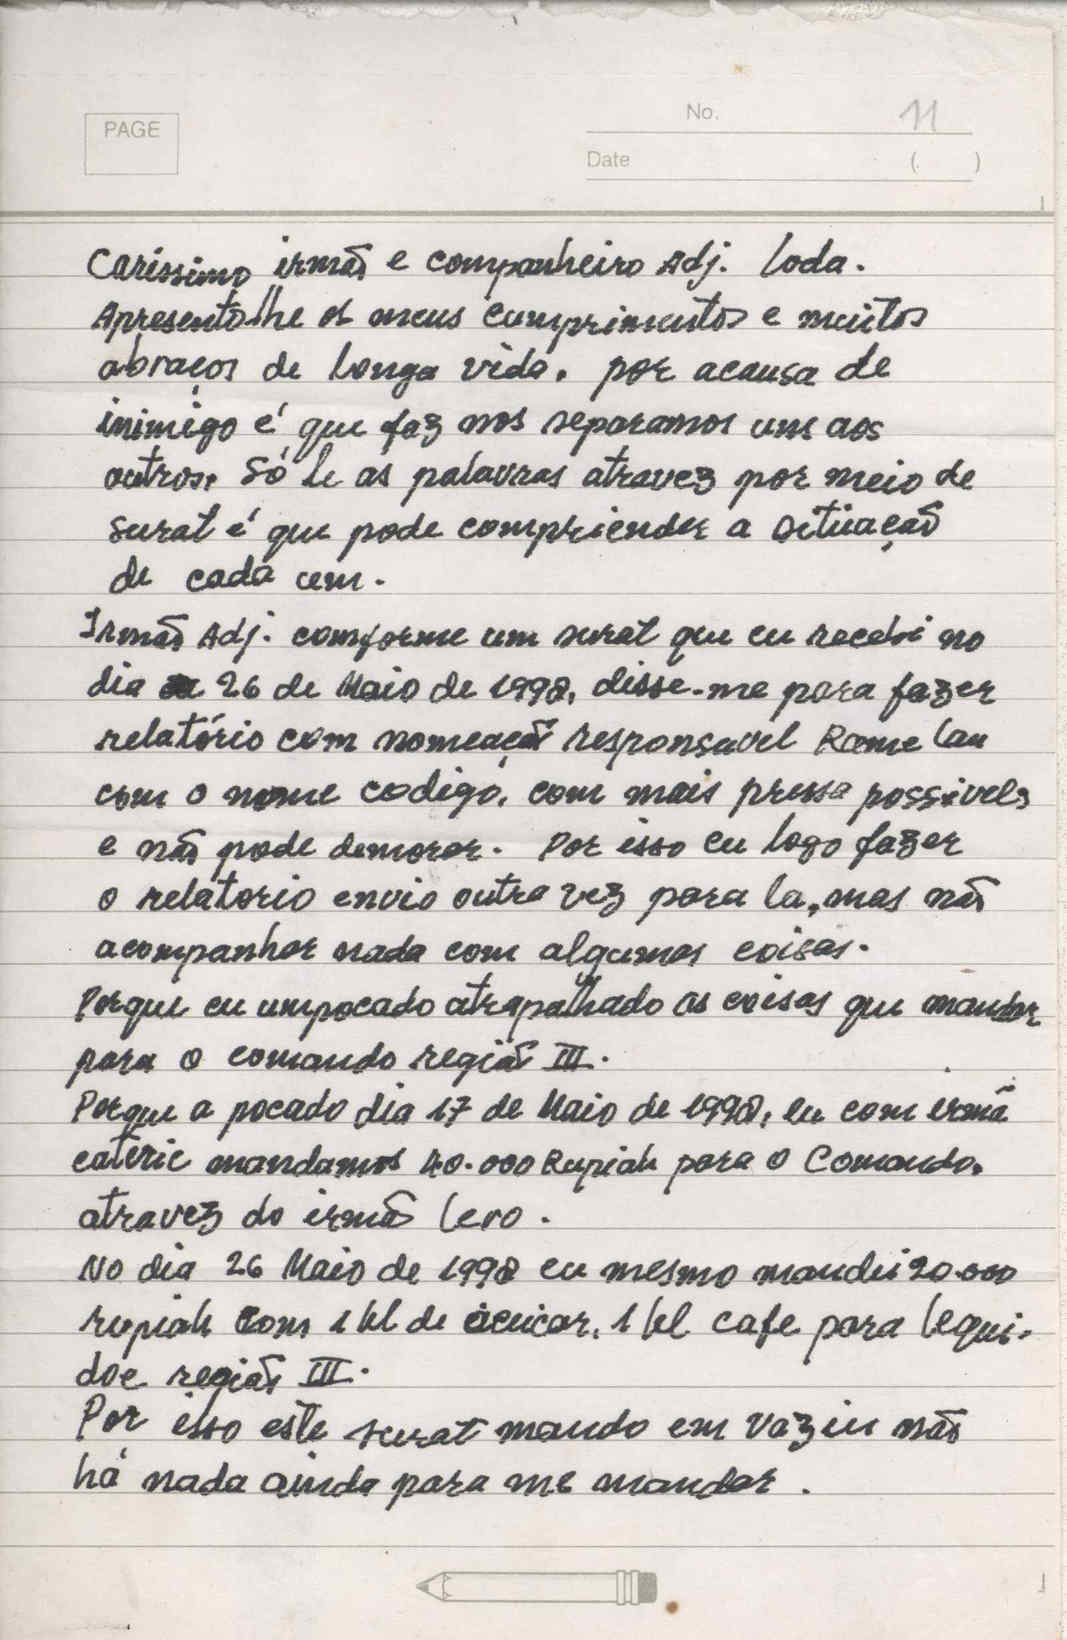 PAGE
No. 11
Date ( )
Caríssimo irmão e companheiro Adj. Loda.
Apresento lhe os meus cumprimentos e muitos
abraços de longa vida. por acausa de
inimigo é que faz nos separamos um aos
outros. Só le as palavras atravez por meio de
surat é que pode compriender a situação
de cada um.
Irmão Adj. comforme um surat que eu recebi no
dia 26 de Maio de 1998, disse-me para fazer
relatório com nomeação responsavel Rame lau
com o nome codigo, com mais pressa possivels
e não pode demorar. Por isso eu logo fazer
o relatorio envio outra vez para la, mas não
acompanhar nada com algumas coisas.
Porque eu umpocado atrapalhado as coisas que mandar
para o comando região III.
Porque a pocado dia 17 de Maio de 1998, eu com irmã
cateric mandamos 40.000 Rupiah para o Comando,
atravez do irmão Lero.
No dia 26 Maio de 1998 eu mesmo mandei 20.000
rupiah com 1 kl de açucar, 1 kl cafe para lequi-
doe região III.
Por isso este surat mando em vaziu não
há nada ainda para me mandar.